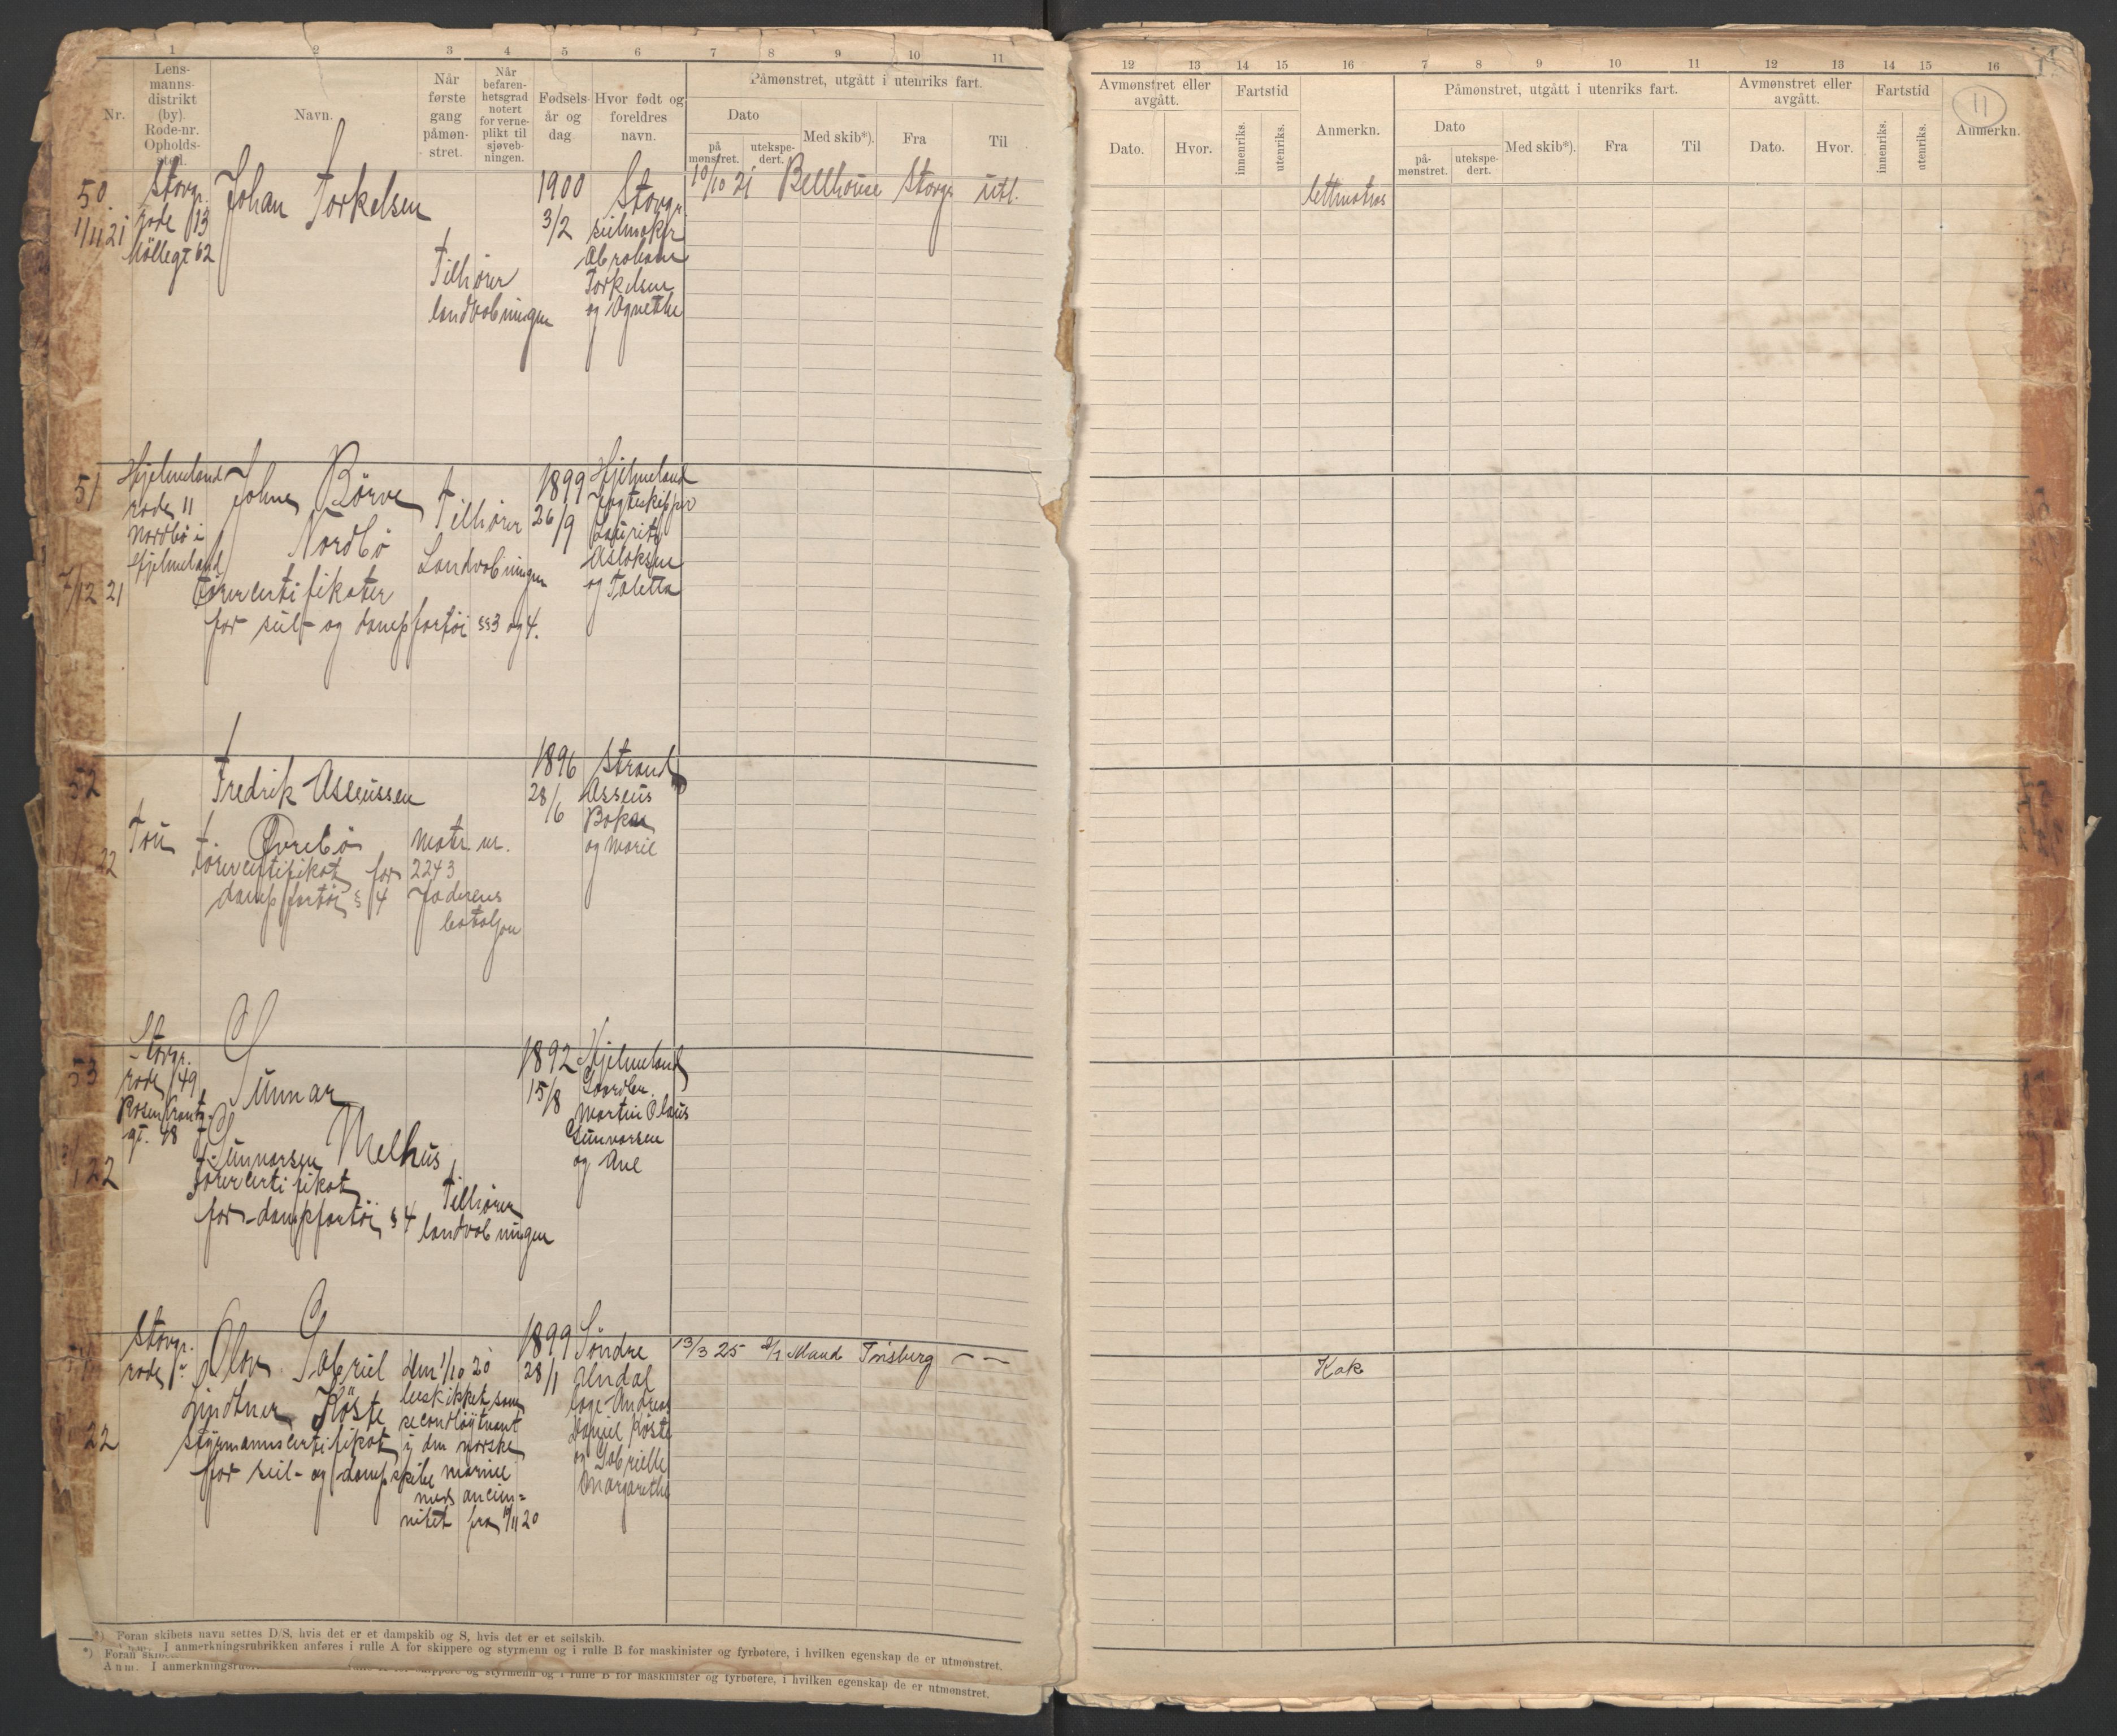 1 2 3 4 5 6 7 8 9 10 11
Nr.
Lens-
manns-
distrikt
(by).
Rode-nr.
Opholds-
sted.
Navn.
Når
første
gang
påmøn-
stret.
Når
befaren-
hetsgrad
notert
for verne-
plikt til
sjøveb-
ningen.
Fødsels-
år og
dag.
Hvor født og
foreldres
navn.
Påmønstret, utgått i utenriks fart.
Dato
på
mønstret.
utekspe-
dert.
Med skib*).
Fra
Til
50.
1/11 21
Stavgr.
rode 13
Möllegt 62
Johan Torkelsen
Tilhører
landvæbningen
1900
3/2
Stavgr.
seilmaker
Abraham
Torkelsen
og Agnethe
10/10 21 Bellhouse Stavgr utl.
51
7/12 21
Hjelmeland
rode 11
Nordbö i
Hjelmeland
Johne Börve
Nordbö
Førercertifikater
for seil- og dampfartøi §§3 og 4.
Tilhører
Landvæbningen
1899
26/9
Hjelmeland
Jagtskipper
Lauritz
Aslaksen
og Taletta
52
22
Tou
Fredrik Asseussen
Øvrebö
Førercertifikat for
dampfartøi § 4
Matr. nr.
2243
Jæderens
bataljon
1896
28/6
Strand
Asseus
Bokn
og Marie
53
22
Stavgr.
rode 49
Rosenkrantz
gt. 18
Gunnar
Gunnarsen Melhus
Førercertifikat
for dampfartøi § 4
Tilhører
landvæbningen
1892
15/8
Hjelmeland
Gaardbr.
Martin Olaus
Gunnarsen
og Ane
22
Stavgr.
rode
Olav Gabriel
Lindtner Köste
Styrmannscertifikat
for seil- og dampskibe
Den 1/10 20
beskikket som
secondløytnant
i den norske
marine
med ancien=
nitet fra 1/11 20
1899
28/1
Söndre
Undal
Loge Andreas
Daniel Köste
og Gabrielle
Margarethe
13/3 25 Maud Tnsberg — —
*) Foran skibets navn settes D/S, hvis det er et dampskib og S, hvis det er et seilskib.
I anmerkningsrubrikken anføres i rulle A for skippere og styrmenn og i rulle B for maskinister og fyrbøtere, i hvilken egenskap de er utmønstret.
*) Foran
Anm. I anmerkningsrubr
skippere og styrmenn og i rulle B for maskinister og fyrbøtere, i hvilken egenskap de er utmønstret.
12 13 14 15 16 7 8 9 10 11 12 13 14 15 16
11
Avmønstret eller
avgått.
Dato.
Hvor.
Fartstid
innenriks.
utenriks.
Anmerkn.
Påmønstret, utgått i utenriks fart.
Dato
på-
mønstret.
utekspe-
dert.
Med skib*).
Fra
Til
Avmønstret eller
avgått.
Dato.
Hvor.
Fartstid
innenriks.
utenriks.
Anmerkn.
lettmatros
Kok